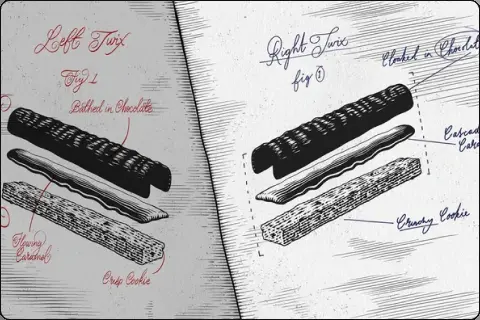 Left Twix
Fig 1
Bathed in Chocolate
Flowing
Caramel
Crisp Cookie
Right Twix
fig 1
Cloaked in Chocolat
Cascad
Cara
Crunchy Cookie